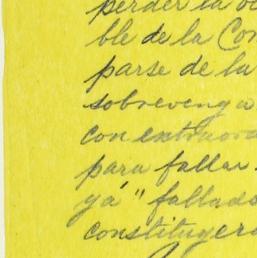 perder la
ble de la Con
parse de la
sobrevenga
con extraor
para fallar.
ya" fallado
constituyero